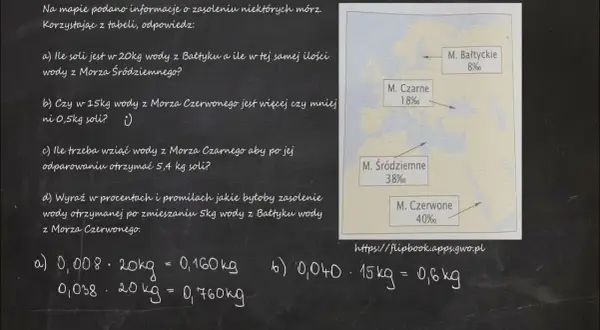 Na mapie podano informacje o zasoleniu niektórych mórz.
Korzystając z tabeli, odpowiedz:
a) Ile soli jest w 20kg wody z Bałtyku a ile w tej samej ilości
wody z Morza Śródziemnego?
b) Czy w 15kg wody z Morza Czerwonego jest więcej czy mniej
ni 0,5kg soli? :)
c) Ile trzeba wziąć wody z Morza Czarnego aby po jej
odparowaniu otrzymać 5,4 kg soli?
d) Wyraź w procentach i promilach jakie byłoby zasolenie
wody otrzymanej po zmieszaniu 5kg wody z Bałtyku wody
z Morza Czerwonego.
M. Bałtyckie
8‰
M. Czarne
18‰
M. Śródziemne
38‰
M. Czerwone
40‰
https://flipbook.apps.gwo.pl
a) 0,008 · 20kg = 0,160kg
0,038 · 20 kg = 0,760kg
b) 0,040 · 15kg = 0,6kg